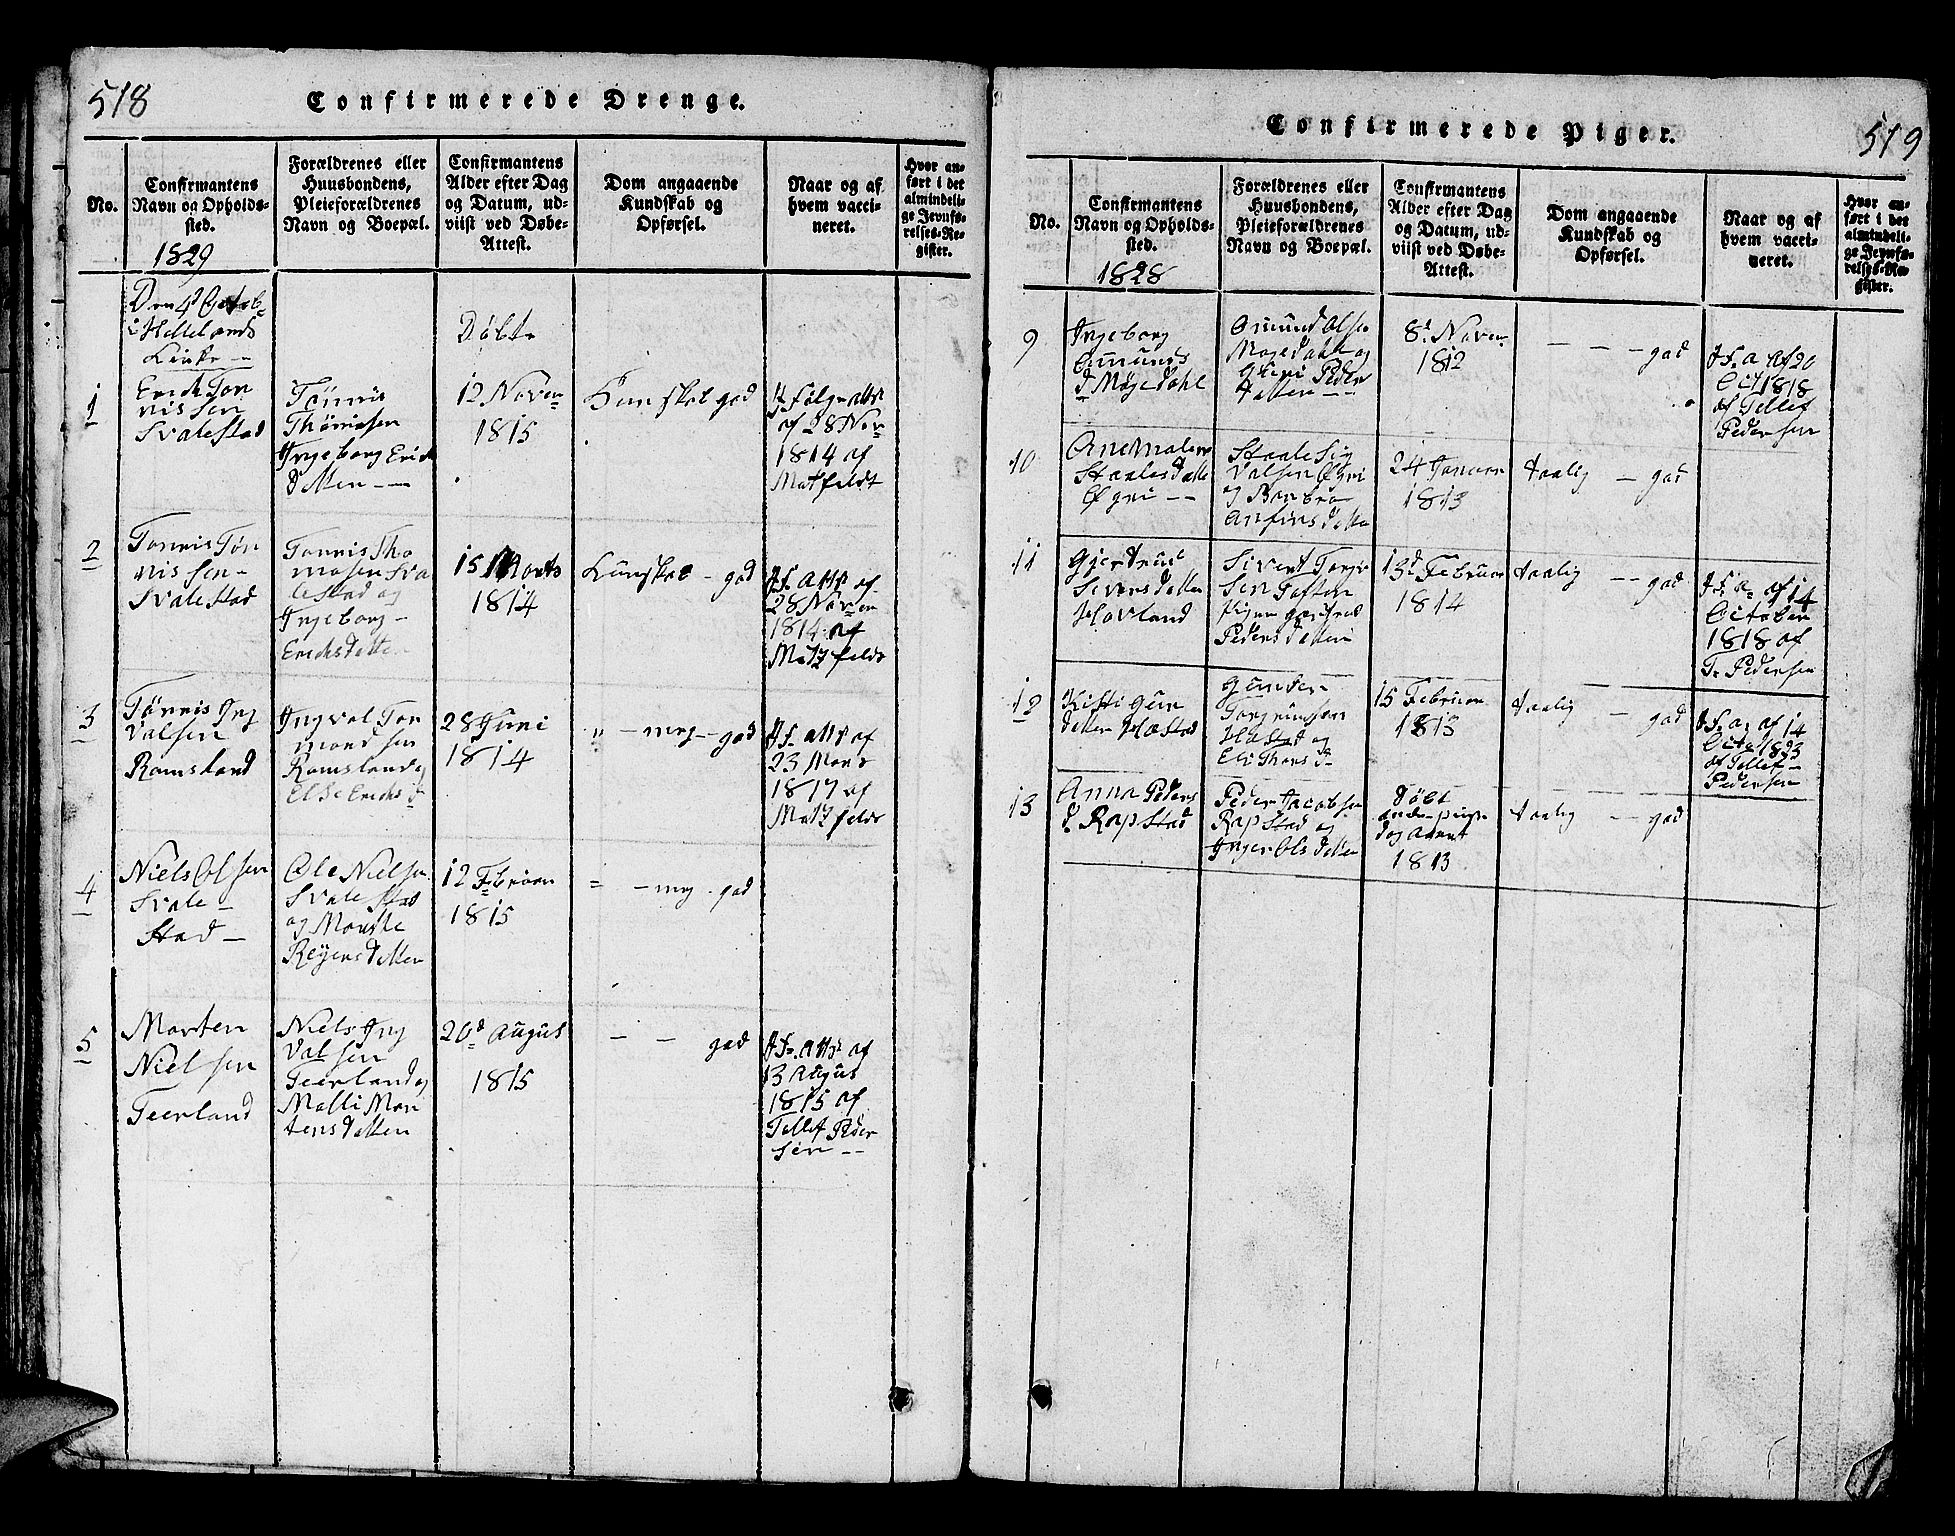 518
Confirmerede Drenge.
No.
Confirmantens
Navn og Opholds-
sted.
1829
Forældrenes eller
Huusbondens,
Pleieforældrenes
Navn og Boepæl.
Confirmantens
Alder efter Dag
og Datum, ud-
viist ved Døbe-
Attest.
Dom angaaende
Kundskab og
Opførsel.
Naar og af
hvem vacci-
neret.
Hvor an-
ført i det
almindeli-
ge Jevnfø-
relses-Re-
gister.
Den 4d Octob
i Hellelands
Kirke —
Døbte
1
Erich Ton
nissen
Svalestad
Tønnis
Thomesen
Ingeborg Erich
Datter —
12 Novem
1815
Kunskab god
af 28 Nov
1814 af
Matzfeldt
2
Tonnis Tøn
nissen —
Svalestad
Tonnis Tho
masen Sva
lestad og
Ingeborg —
Erichsdatter
15 Marts
1814
Kunskab — god
If. atts af
28 Novem
1814 af
Matzfeldt
3
Tønnis Ing
valsen
Ramsland
Ingval Ton
mondsen
Ramsland og
Else Erichs d
28 Juni
1814
" — meg — god
If. atts af
23 Mars
1817 af
Matzfeldt
4
Niels Olsen
Svale —
stad —
Ole Nielsen
Svalestad
og
Datter
12 Februar
1815
= — meg - god
5
Morten
Nielsen
Teerland
Niels Ing
valsen
Teerland og
Malli Mor
tensdatter
20d August
1815
— — god
If. atts af
13 August
1815 af
Tellef Peder
sen —
Confirmerede Piger.
519
No.
Confirmantens
Navn og Opholds-
sted.
1828
Forældrenes eller
Huusbondens,
Pleieforældrenes
Navn og Boepæl.
Confirmantens
Alder efter Dag
og Datum, ud-
viist ved Døbe-
Attest.
Dom angaaende
Kundskab og
Opførsel.
Naar og af
hvem vacci-
neret.
Hvor an-
ført i det
almindeli-
ge Jevnfø-
relses-Re-
gister.
9
Ingeborg
Omunds
d Møgedahl
Omund Olsen
Møgedahl og
Peder
Datter —
8d Novem
1812
— — — god
If. a. af 20
Oct 1818
af Tellef
Pedersen
10
Ane Malene
Staalesdatter
Øgrei —
Staale Sig
valsen Øgrei
og Barbra
Anfinsdatter
24 Januar
1813
taalig — god
11
Gjertrud
Siversdatter
Hovland
Sivert Torge
sen
Pedersdatter
13d Februar
1814
taalig — god
If. a. af 14
October
1818 af
T. Pedersen
12
Kisti Gun
datter Hæstad
Gunder
Torgrimsen
Hæstad og
Eli Thores d
15 Februar
1813
taalig — god
If. a. af 14
Octo 1823
af Tellef —
Pedersen
13
Anna Peders
d. Rapstad
Peder Jacobsen
Rapstad og
Inger Olsdatter
Døbt
anden
dag
1813
taalig — god